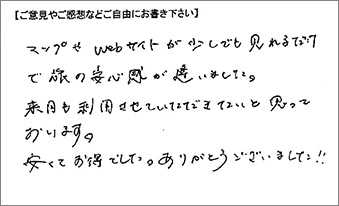 【ご意見やご感想などご自由にお書き下さい】
マップやwebサイトが少しでも見れるだけ
で旅の安心感が違いました。
来月も利用させていただきたいと思って
おります。
安くてお得でした。ありがとうございました!!